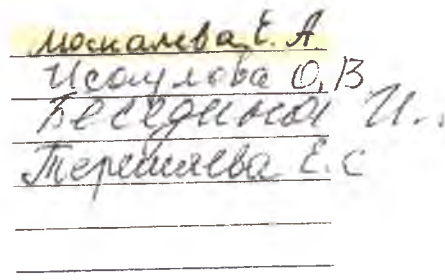 Москалева Е. А.
Исаулова О, В
Беседина И.
Терешаева Е. С